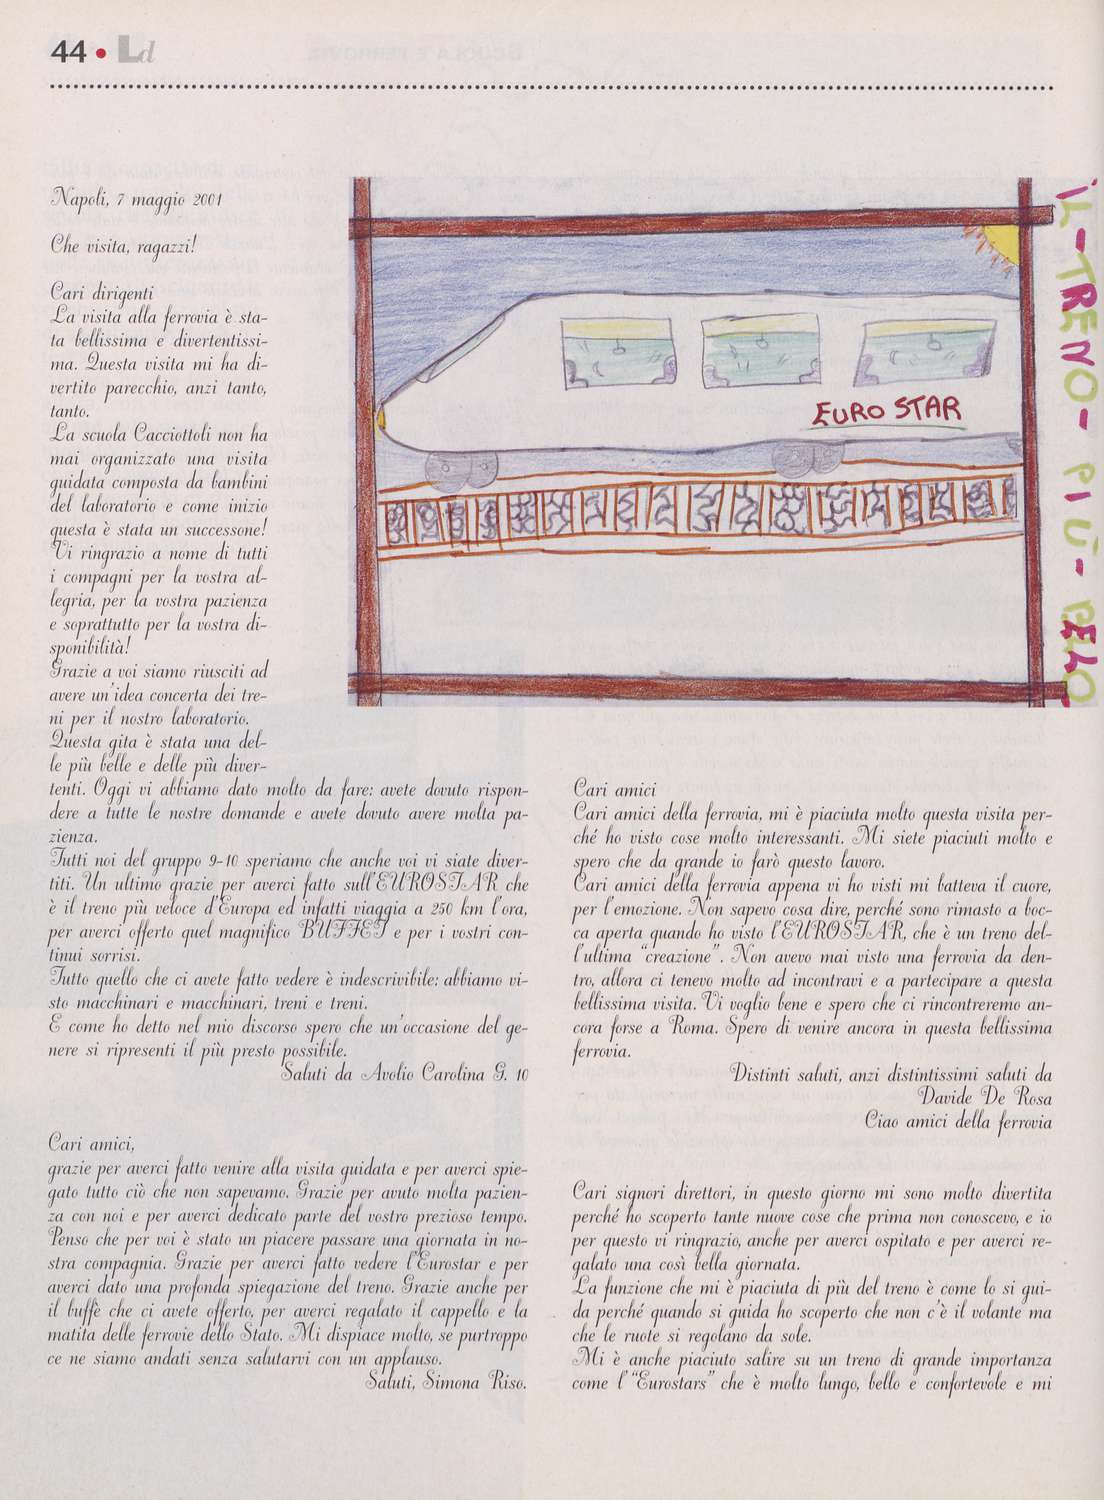 44 • Ld
Napoli, 7 maggio 2001
Che visita, ragazzi!
Cari dirigenti
La visita alla ferrovia è sta-
ta bellissima e divertentissi-
ma. Questa visita mi ha di-
vertito parecchio, anzi tanto,
tanto.
La scuola Cacciottoli non ha
mai organizzato una visita
guidata composta da bambini
del laboratorio e come inizio
questa è stata un successone!
Vi ringrazio a nome di tutti
i compagni per la vostra al-
legria, per la vostra pazienza
e soprattutto per la vostra di-
sponibilità!
Grazie a voi siamo riusciti ad
avere un'idea concerta dei tre-
ni per il nostro laboratorio.
Questa gita è stata una del-
le più belle e delle più diver-
tenti. Oggi vi abbiamo dato molto da fare: avete dovuto rispon-
dere a tutte le nostre domande e avete dovuto avere molta pa-
zienza.
Tutti noi del gruppo 9-10 speriamo che anche voi vi siate diver-
titi. Un ultimo grazie per averci fatto sull'EUROSTAR che
è il treno più veloce d'Europa ed infatti viaggia a 250 km l'ora,
per averci offerto quel magnifico BUFFET e per i vostri con-
tinui sorrisi.
Tutto quello che ci avete fatto vedere è indescrivibile: abbiamo vi-
sto macchinari e macchinari, treni e treni.
E come ho detto nel mio discorso spero che un'occasione del ge-
nere si ripresenti il più presto possibile.
Saluti da Avolio Carolina G. 10
Cari amici,
grazie per averci fatto venire alla visita guidata e per averci spie-
gato tutto ciò che non sapevamo. Grazie per avuto molta pazien-
za con noi e per averci dedicato parte del vostro prezioso tempo.
Penso che per voi è stato un piacere passare una giornata in no-
stra compagnia. Grazie per averci fatto vedere l'Eurostar e per
averci dato una profonda spiegazione del treno. Grazie anche per
il buffè che ci avete offerto, per averci regalato il cappello e la
matita delle ferrovie dello Stato. Mi dispiace molto, se purtroppo
ce ne siamo andati senza salutarvi con un applauso.
Saluti, Simona Riso.
EURO STAR
IL-TRENO-PIÙ-BELO
Cari amici
Cari amici della ferrovia, mi è piaciuta molto questa visita per-
ché ho visto cose molto interessanti. Mi siete piaciuti molto e
spero che da grande io farò questo lavoro.
Cari amici della ferrovia appena vi ho visti mi batteva il cuore,
per l'emozione. Non sapevo cosa dire, perché sono rimasto a boc-
ca aperta quando ho visto l'EUROSTAR, che è un treno del-
l'ultima "creazione". Non avevo mai visto una ferrovia da den-
tro, allora ci tenevo molto ad incontravi e a partecipare a questa
bellissima visita. Vi voglio bene e spero che ci rincontreremo an-
cora forse a Roma. Spero di venire ancora in questa bellissima
ferrovia.
Distinti saluti, anzi distintissimi saluti da
Davide De Rosa
Ciao amici della ferrovia
Cari signori direttori, in questo giorno mi sono molto divertita
perché ho scoperto tante nuove cose che prima non conoscevo, e io
per questo vi ringrazio, anche per averci ospitato e per averci re-
galato una così bella giornata.
La funzione che mi è piaciuta di più del treno è come lo si gui-
da perché quando si guida ho scoperto che non c'è il volante ma
che le ruote si regolano da sole.
Mi è anche piaciuto salire su un treno di grande importanza
come l' "Eurostars" che è molto lungo, bello e confortevole e mi